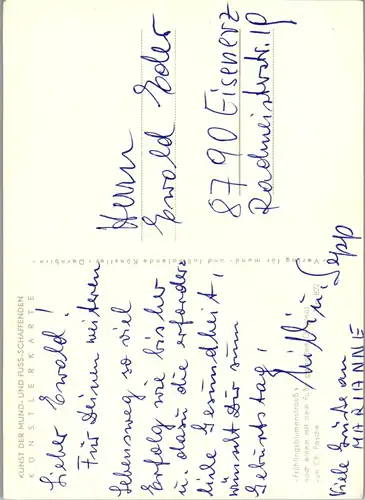 KUNST DER MUND- UND FUSS-SCHAFFENDEN
KÜNSTLERKARTE
Lieber Ewald!
Für Deinen weiteren
Lebensweg so viel
Erfolg wie bisher
u. dazu die erforder-
liche Gesundheit,
wünscht Dir zum
Geburtstag,
Sepp
Viele Grüße an
MARIANNE
„Frühlingsblumenstrauß“
nach einem mit dem Fuß
von Ch. Pasche
Verlag für mund- und fußmalende Künstler · Dornbirn
Herrn
Ewald Eder
8790 Eisenerz
Radmeisterstr. 19